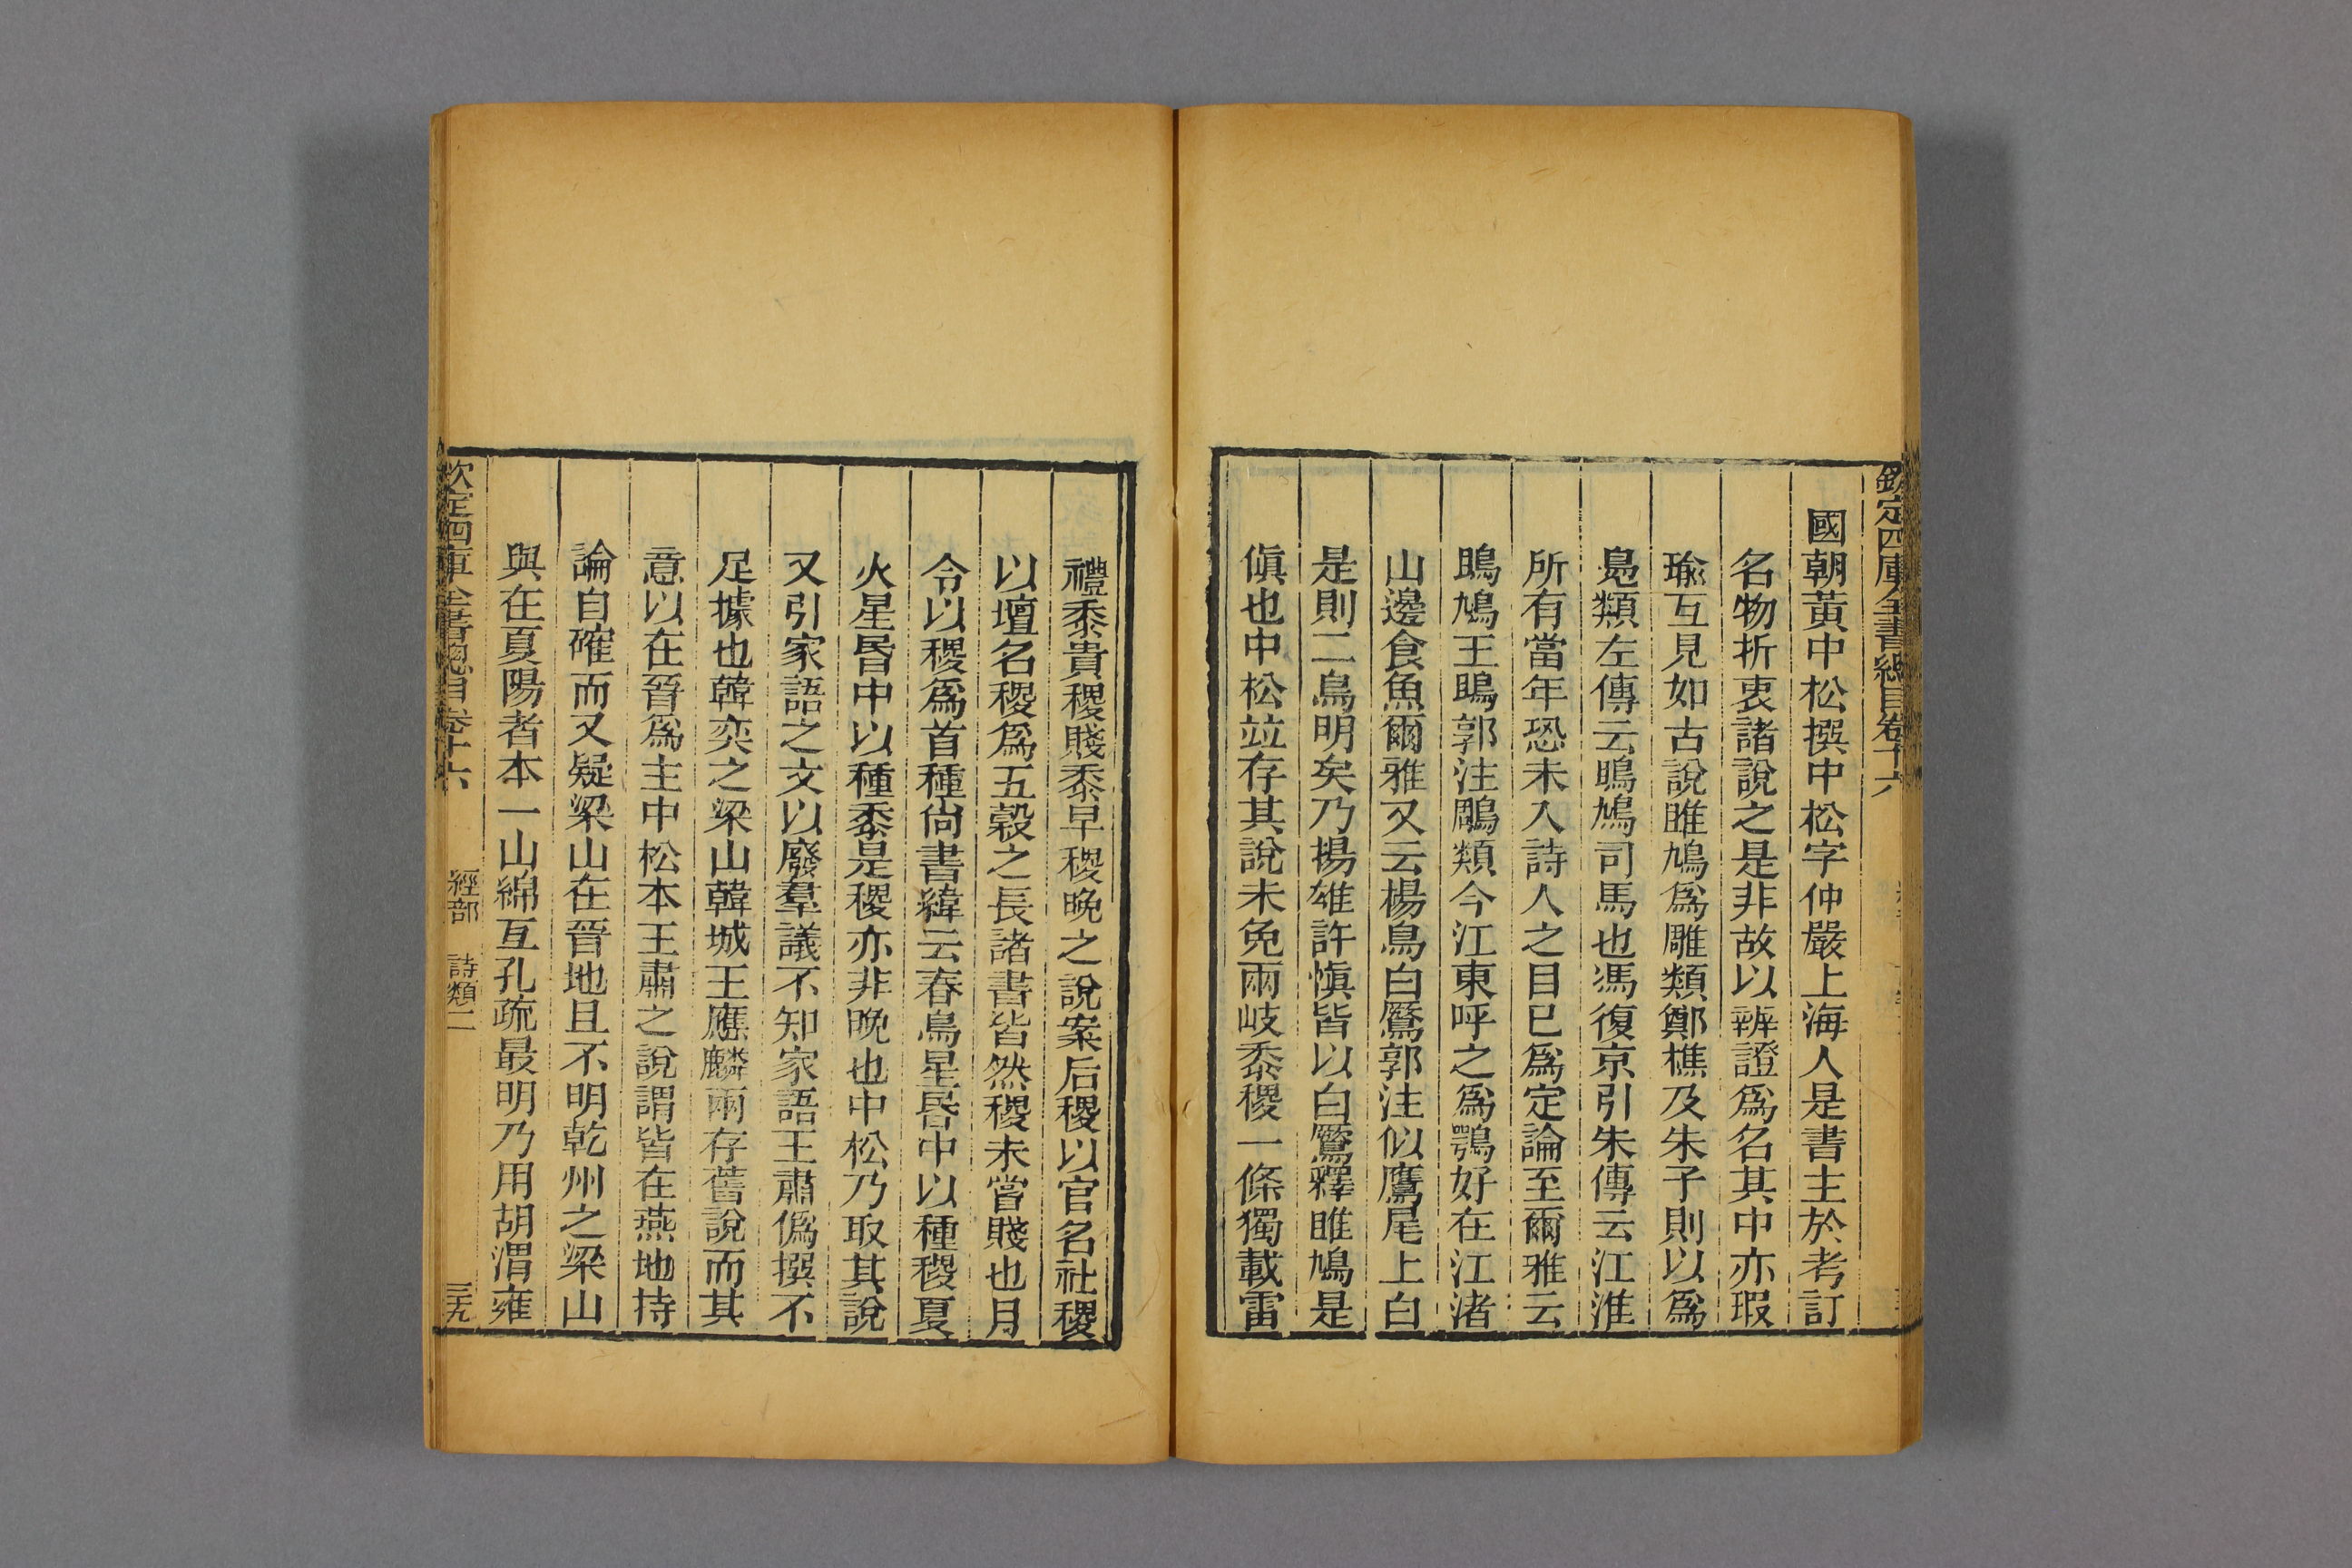 欽定四庫全書總目卷十六
國朝黃中松撰中松字仲嚴上海人是書主於考訂
名物折衷諸說之是非故以辨證爲名其中亦瑕
瑜互見如古說雎鳩爲雕類鄭樵及朱子則以爲
鳧類左傳云鴡鳩司馬也馮復京引朱傳云江淮
所有當年恐未入詩人之目已爲定論至爾雅云
鴡鳩王鴡郭注鵰類今江東呼之爲鶚好在江渚
山邊食魚爾雅又云楊鳥白鷢郭注似鷹尾上白
是則二鳥明矣乃揚雄許愼皆以白鷢釋雎鳩是
傎也中松竝存其說未免兩岐黍稷一條獨載雷
禮黍貴稷賤黍早稷晚之說案后稷以官名社稷
以壇名稷爲五穀之長諸書皆然稷未嘗賤也月
令以稷爲首種尙書緯云春鳥星昏中以種稷夏
火星昏中以種黍是稷亦非晚也中松乃取其說
又引家語之文以廢羣議不知家語王肅僞撰不
足據也韓奕之梁山韓城王應麟兩存舊說而其
意以在晉爲主中松本王肅之說謂皆在燕地持
論自確而又疑梁山在晉地且不明乾州之梁山
與在夏陽者本一山綿亙孔疏最明乃用胡渭雍
欽定四庫全書總目卷十六 經部 詩類二 三九